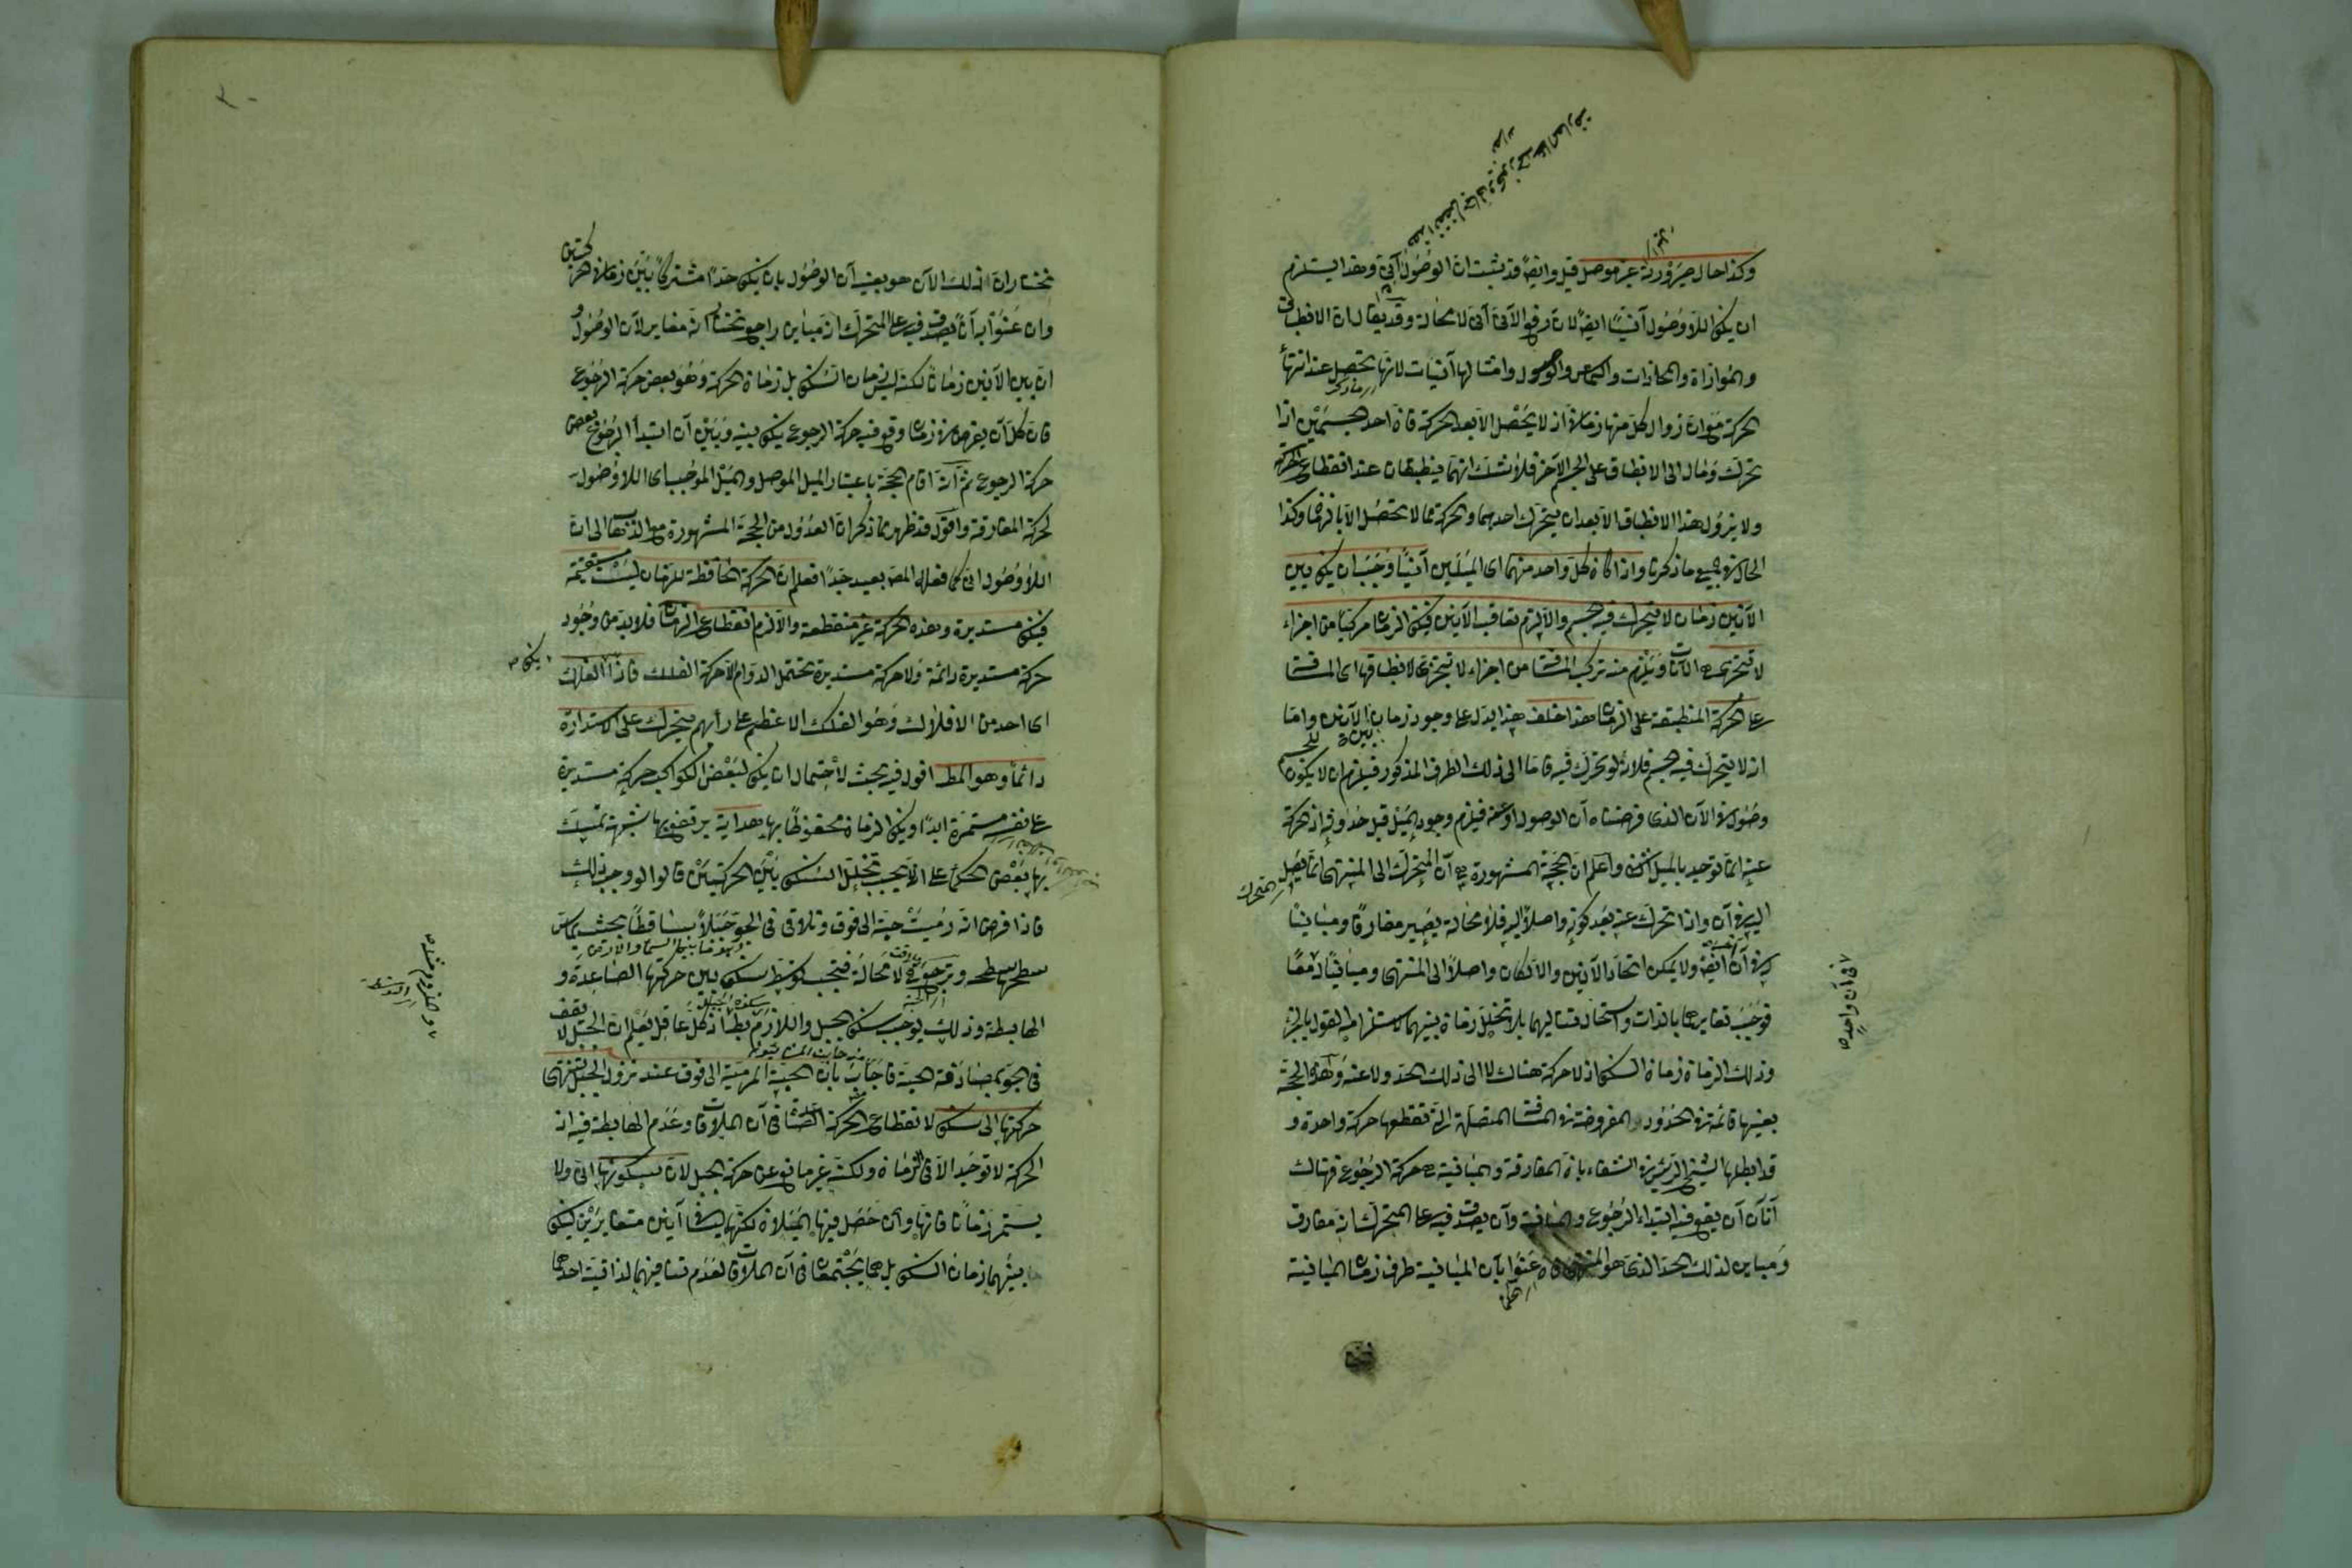 وكذا حال صيرورته غير موصل قيل وايضا قد يثبت ان الوصول آني وهذا يستلزم
ان يكن اللاوصول آنيا ايضا لان رفع الآني آني لا محالة وقد يقال ان الانطباق
والموازاة والمحاذات والتماس والوصول وامثالها آنيات لانها تحصل عند انتهأ
الحركة مع ان زوال كل منها زماني اذ لا يحصل الا بعد الحركة فان احد الجسمين اذا
تحرك ومال الى الانطباق على الجسم الآخر فلا شك انهما ينطبقان عند انقطاع الحركة
ولا يزول هذا الانطباق الا بعد ان يتحرك احدهما والحركة مما لا تحصل الا بالزمان وكذا
الحال في جميع ما ذكرنا واذا كان كل واحد منهما اى الميلين آنيا وجب ان يكن بين
الآنين زمان لا يتحرك فيه الجسم والا لزم تعاقب الآنين فيكن الزمان مركبا من اجزاء
لا تتجزى هى الآنات ويلزم منه تركب المسافة من اجزاء لا تتجزى لانطباقها اى المسافة
على الحركة المنطبقة على الزمان هذا خلف هذا يدل على وجود زمان بين الآنين واما
انه لا يتحرك فيه الجسم فلانه لو تحرك فيه فاما الى ذلك الطرف المذكور فيلزم ان لا يكون
وصوله في الآن الذى فرضناه آن الوصول او عنه فيلزم وجود الميل قبل حدوثه اذ الحركة
عنه انما توجد بالميل الثانى واعلم ان الحجة المشهورة هى ان المتحرك الى المنتهى انما يصل
اليه في آن واذا تحرك عنه بعد كونه واصلا اليه فلا محالة يصير مفارقا ومباينا
له في آن ايضا ولا يمكن اتحاد الآنين والا لكان واصلا الى المنتهى ومباينا له معا
في آن واحد
فوجب تغايرهما بالذات واستحال تتاليهما بلا تخلل زمان بينهما لاستلزامه القول بالجزء
وذلك الزمان زمان السكن اذ لا حركة هناك لا الى ذلك الحد ولا عنه وهذه الحجة
بعينها قائمة في الحدود المفروضة في المسافة المتصلة التى تقطعها حركة واحدة و
قد ابطلها الشيخ الرئيس في الشفاء بان المفارقة والمباينة هى حركة الرجوع فهناك
آنان آن يقع فيه ابتداء الرجوع والمباينة وآن يصدق فيه على المتحرك انه مفارق
ومباين لذلك الحد الذى هو المنتهى فان عنوا بآن المباينة طرف زمان المباينة
نختار ان ذلك الآن هو بعينه آن الوصول بان يكن حدا مشتركا بين زمانى الحركتين
وان عنوا به آنا يصدق فيه على المتحرك انه مباين راجع نختار انه مغاير لآن الوصول و
ان بين الآنين زمانا لكنه ليس زمان السكن بل زمان الحركة وهو بعض حركة الرجوع
فان كل آن يفرض في زمان وقع فيه حركة الرجوع يكن بينه وبين آن ابتدأ الرجوع بعض
حركة الرجوع ثم انه اقام الحجة باعتبار الميل الموصل والميل الموجب اى اللاوصول
لحركة المفارقة واقول قد ظهر مما ذكر ان العدول من الحجة المشهورة مع الذهاب الى ان
اللاوصول آنى كما فعله المص بعيد جدا فعلم ان الحركة الحافظة للزمان ليست مستقيمة
فيكن مستديرة وهذه الحركة غير منقطعة والا لزم انقطاع الزمان فلا بد من وجود
حركة مستديرة دائمة ولا حركة مستديرة تحتمل الدوام الا حركة الفلك فاذا الفلك
اى احد من الافلاك وهو الفلك الاعظم على رأيهم متحرك على الاستدارة
دائما وهو المط اقول فيه بحث لاحتمال ان يكن لبعض الكواكب حركة مستديرة
على نفسه مستمرة ابدا ويكن الزمان محفوظا بها هداية يرفع بها شبهة تمسك
بها بعض الحكماء على انه لا يجب تخلل السكن بين الحركتين قالوا لو وجب ذلك
فاذا فرض انه رميت حبة الى فوق وتلاقى في الجو جبلا ساقطا بحيث يماس
سطحها سطحه وترجع لا محالة فيجب توسط سكن بين حركتها الصاعدة و
الهابطة وذلك يوجب سكن الجبل واللازم بط اذ كل عاقل يعلم ان الجبل لا يقف
في الجو بمصادفة الحبة فاجاب بان الحبة المرمية الى فوق عند نزول الجبل تنتهى
حركتها الى سكن لانقطاع الحركة الصاعدة في آن الملاقات وعدم الهابطة فيه اذ
الحركة لا توجد الا في الزمان ولكنه غير مانع عن حركة الجبل لان سكونها آنى ولا
يستمر زمانا فانها وان حصل فيها الميلان لكنهما ليسا في آنين متغايرين ليكن
بينهما زمان السكن بل هما يجتمعان في آن الملاقات لعدم تنافيهما لذاتية احدهما